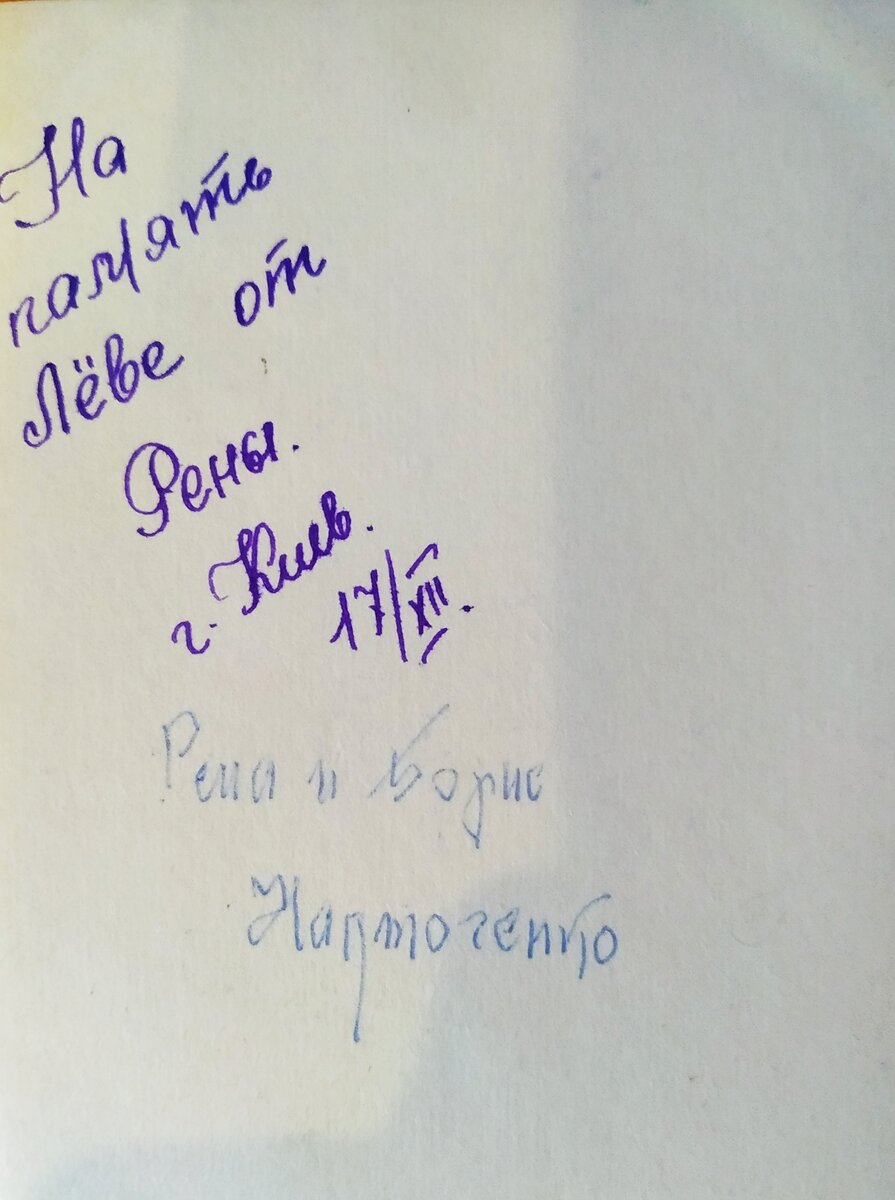 На
память
Лёве от
Рены.
г. Киев.
17/XII.
Рена и Борис
Нарточенко